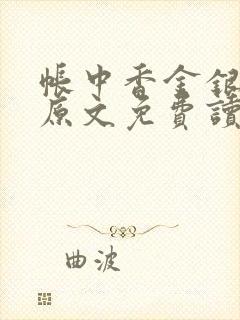 帳中香金銀
原文免費讀
曲波